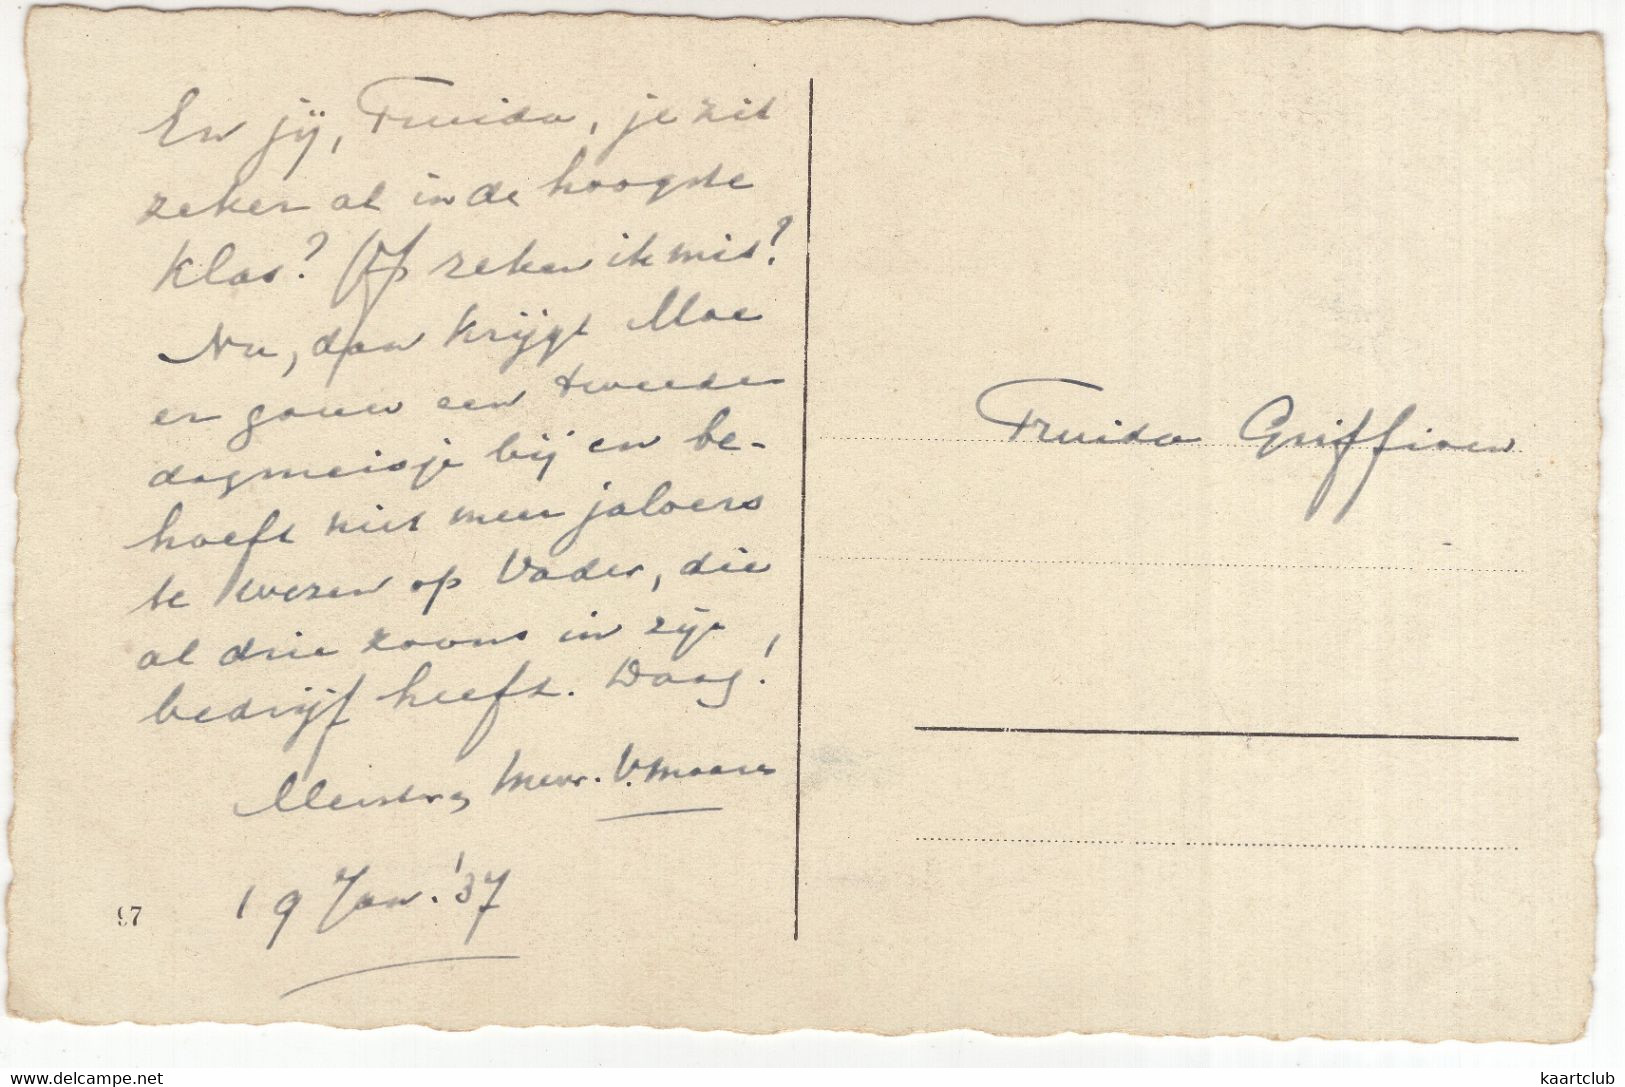 En jij, Truida, je zit
zeker al in de hoogste
klas? Of zeker ik mis?
Nu, dan krijgt Moe
er gauw een tweede
dagmeisje bij en be-
hoeft niet meer jaloers
te wezen op Vader, die
al drie zoons in zijn
bedrijf heeft. Daag!
Mevr. V. Maaren
19 Jan. '37
97
Truida Griffioen
www.delcampe.net
kaartclub